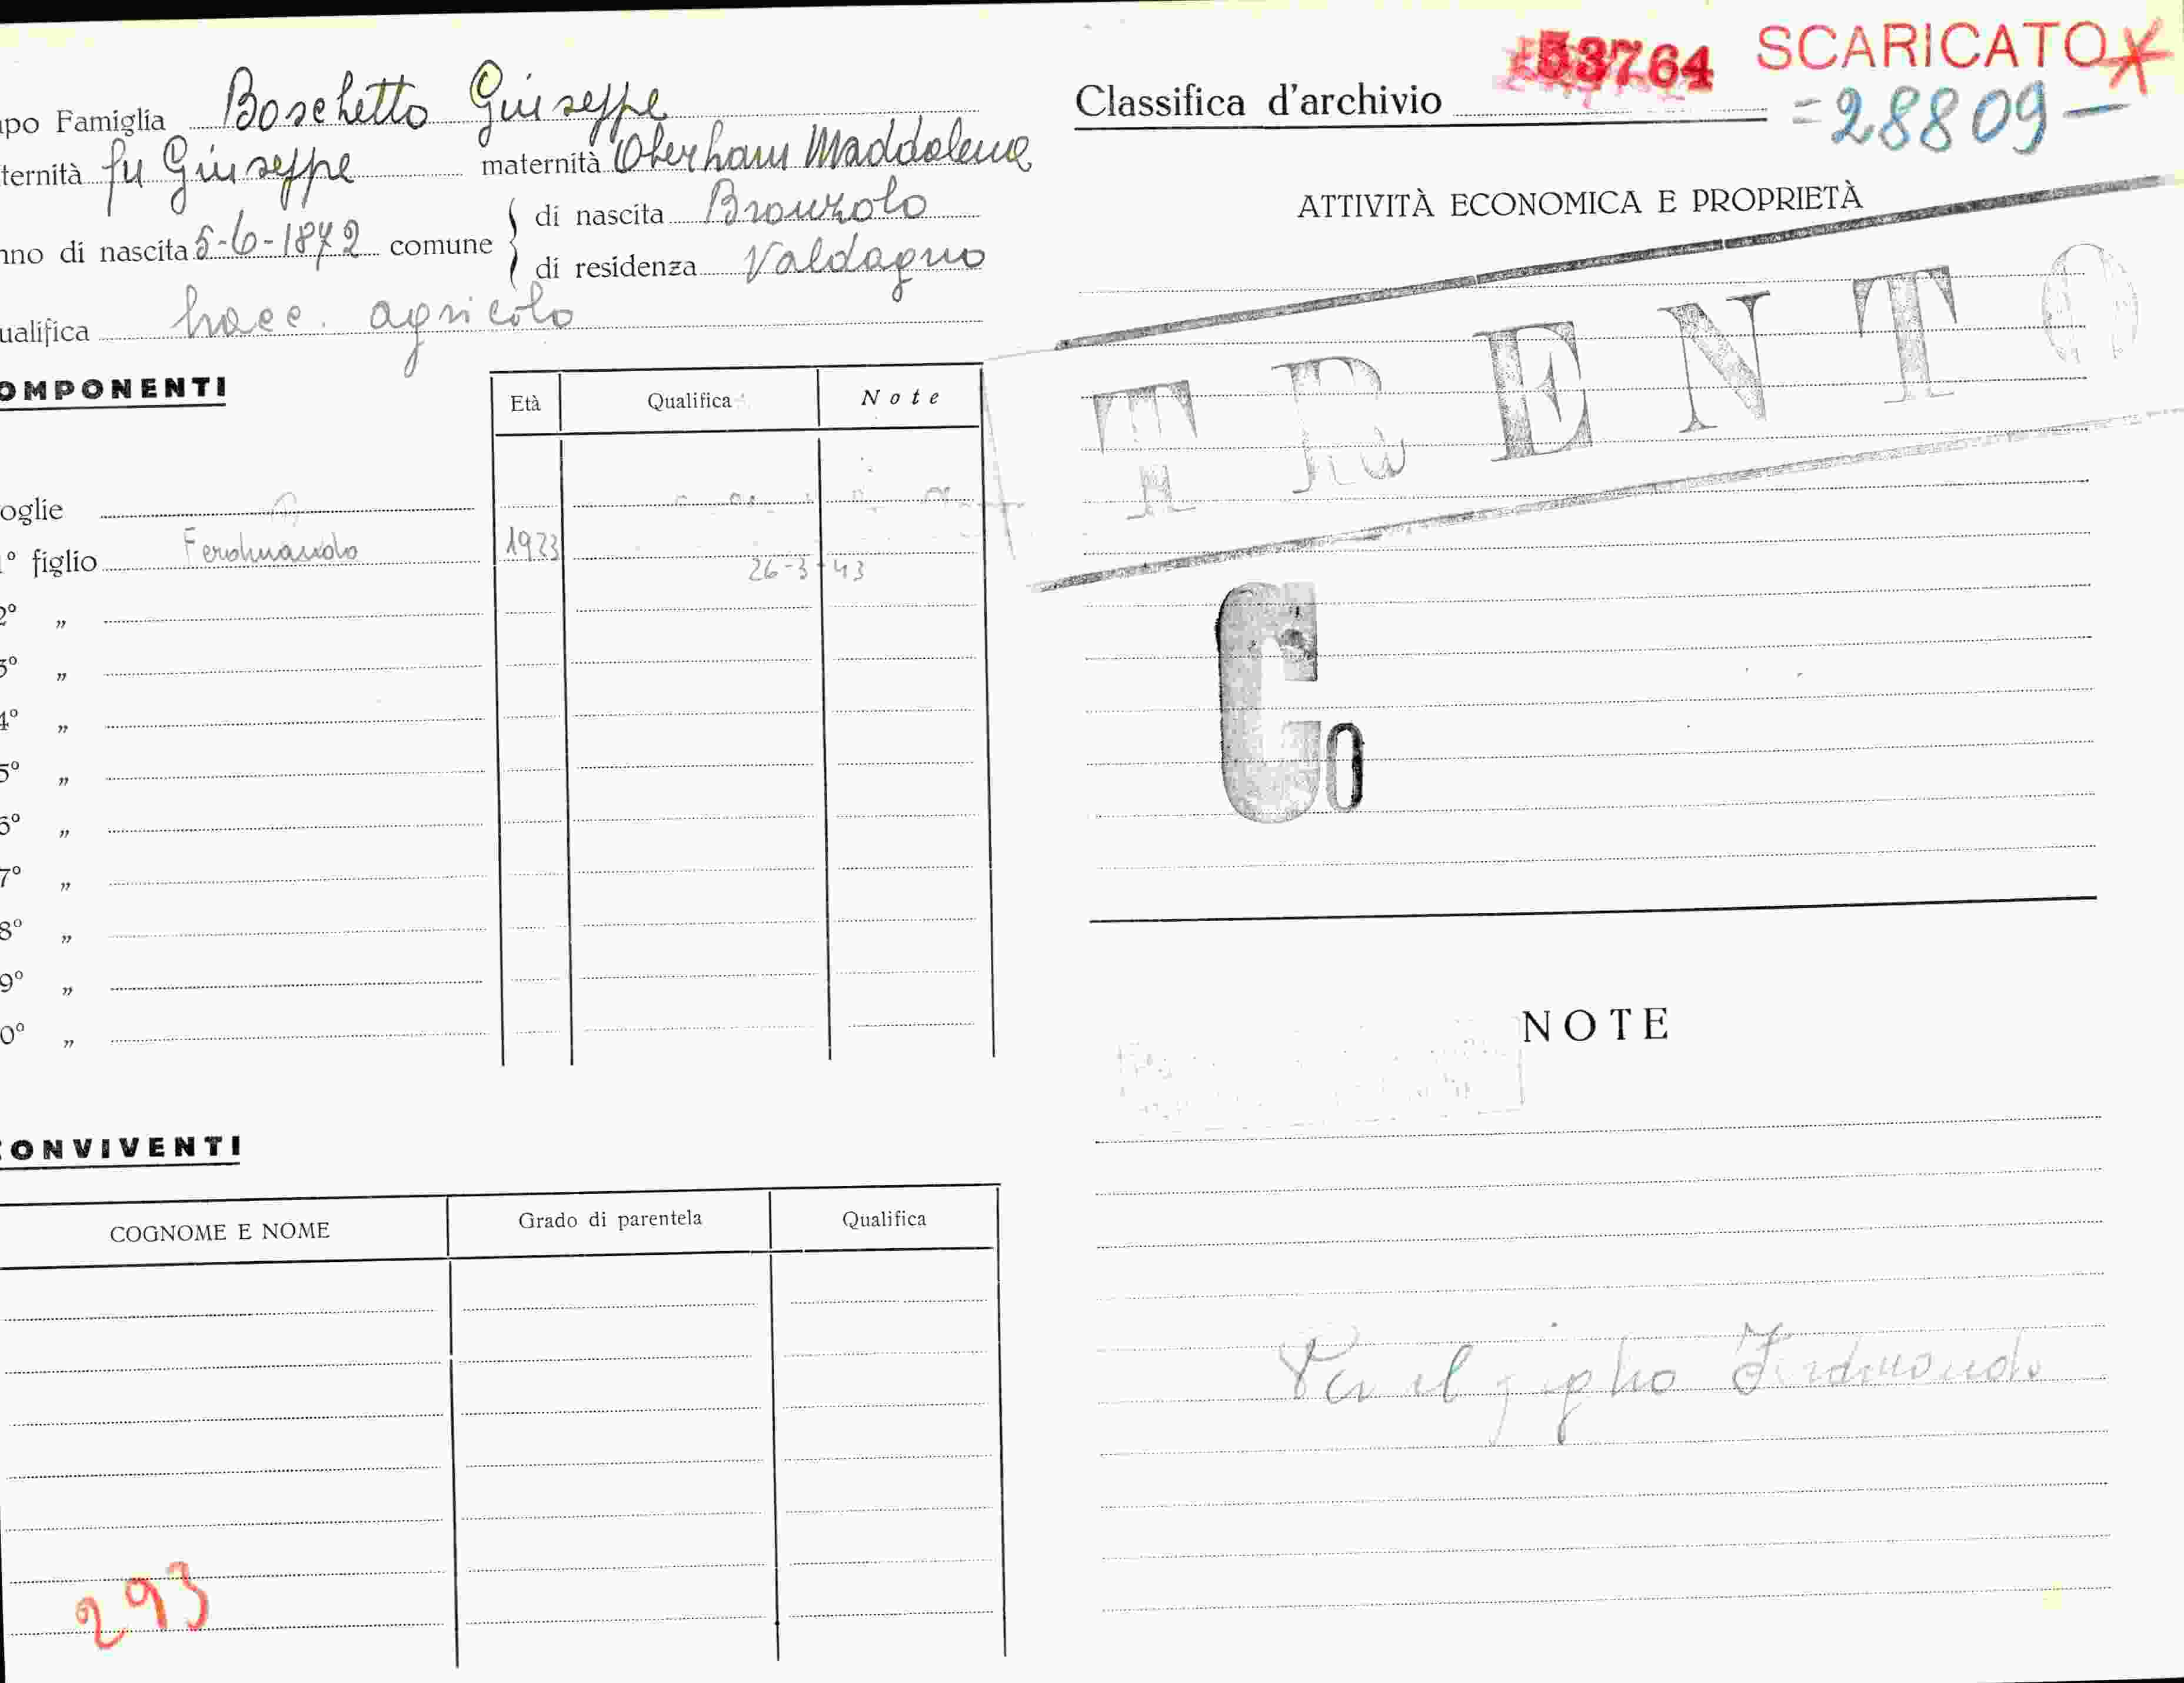 apo Famiglia Boschetto Giuseppe
ternità fu Giuseppe maternità Oberham Maddalena
nno di nascita 5-6-1872 comune di nascita Bronzolo
di residenza Valdagno
ualifica bracc. agricolo
OMPONENTI
Età Qualifica Note
oglie
1° figlio Ferdinando 1923
26-3-43
2° „
3° „
4° „
5° „
6° „
7° „
8° „
9° „
0° „
CONVIVENTI
COGNOME E NOME Grado di parentela Qualifica
293
Classifica d'archivio 53764 SCARICATO
=28809-
ATTIVITÀ ECONOMICA E PROPRIETÀ
TRENTO
Co
NOTE
Per il figlio Ferdinando